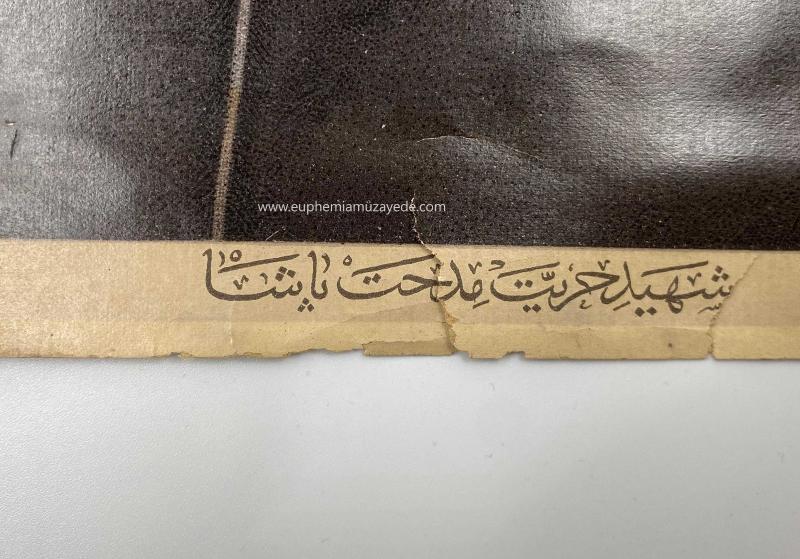 www.euphemiamüzayede.com
شهيدِ حريّت مدحت پاشا